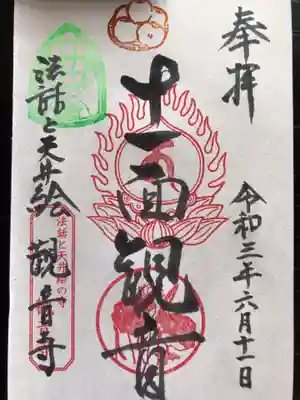 奉拝
令和三年六月十一日
十一面観音
法話と天井絵
観音寺
法話と天井絵の寺